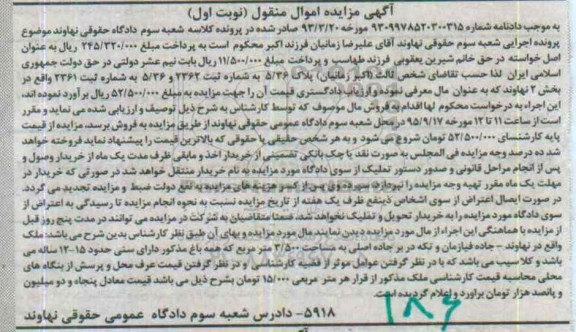 آگهی مزایده اموال منقول (نوبت اول)
به موجب دادنامه شماره ۹۳۰۹۹۷۸۵۲۰۳۰۰۳۱۵ مورخه ۹۳/۳/۲۰ صادر شده در پرونده کلاسه شعبه سوم دادگاه حقوقی نهاوند موضوع
پرونده اجرایی شعبه سوم حقوقی نهاوند آقای علیرضا زمانیان فرزند اکبر محکوم است به پرداخت مبلغ ۲۴۵/۳۲۰/۰۰۰ ریال به عنوان
اصل خواسته در حق خانم شیرین یعقوبی فرزند طهماسب و پرداخت مبلغ ۱۱/۵۰۰/۰۰۰ ریال بابت نیم عشر دولتی در حق دولت جمهوری
اسلامی ایران لذا حسب تقاضای شخص ثالث (اکبر زمانیان) پلاک ۵/۳۶ به شماره ثبت ۲۳۶۲ و ۵/۳۶ به شماره ثبت ۲۳۶۱ واقع در
بخش ۲ نهاوند که به عنوان مال معرفی نموده و ارزیاب دادگستری قیمت آن را جهت مزایده به مبلغ ۵۲/۵۰۰/۰۰۰ ریال برآورد نموده اند،
این اجراء به درخواست محکوم لها اقدام به فروش مال موصوف که توسط کارشناس به شرح ذیل توصیف و ارزیابی شده می نماید و مقرر
است از ساعت ۱۱ تا ۱۲ مورخه ۹۵/۹/۱۷ در محل شعبه سوم دادگاه عمومی حقوقی نهاوند از طریق مزایده به فروش برسد، مزایده از قیمت
پایه کارشناسی ۵۲/۵۰۰/۰۰۰ تومان شروع می شود و به هر شخص حقیقی یا حقوقی که بالاترین قیمت را پیشنهاد نماید فروخته خواهد
شد ده درصد وجه مزایده فی المجلس به صورت نقد یا چک بانکی تضمینی از خریدار اخذ و مابقی ظرف مدت یک ماه از خریدار وصول و
پس از انجام مراحل قانونی و صدور دستور تملیک از سوی دادگاه مورد مزایده به نام خریدار منتقل خواهد شد در صورتی که خریدار در
مهلت یک ماه مقرر تهیه وجه مزایده را نپردازد سپرده وی پس از کسر هزینه های مزایده به نفع دولت ضبط و مزایده تجدید می گردد.
در صورت ایصال اعتراض از سوی اشخاص ذینفع ظرف یک هفته از تاریخ مزایده نسبت به نحوه انجام مزایده تا رسیدگی به اعتراض از
سوی دادگاه مورد مزایده را به خریدار تحویل و تملیک نخواهد شد، ضمنا متقاضیان به شرکت در مزایده می توانند در مدت پنج روز قبل
از مزایده با هماهنگی این اجراء از مال مورد مزایده دیدن نمایند مال مورد مزایده و بهای آن طبق نظر کارشناس بدین شرح می باشد: ملک
واقع در نهاوند - جاده فیازمان و تکه در بر جاده اصلی به مساحت ۳/۵۰۰ متر مربع که همه باغ مذکور دارای سنی حدود ۱۵-۱۲ ساله می
باشد و کلا سیب می باشد که با در نظر گرفتن عوامل موثر از قلمه کارشناسی و در نظر گرفتن قیمت عرف محل و پرسش از بنگاه های
محلی محاسبه قیمت کارشناسی ملک مذکور از قرار هر متر مربعی ۱۵/۰۰۰ تومان بشرح ذیل می باشد قیمت معادل پنجاه و دو میلیون
و پانصد هزار تومان براورد و اعلام گردیده است.
۵۹۱۸- دادرس شعبه سوم دادگاه عمومی حقوقی نهاوند
۱۸۶